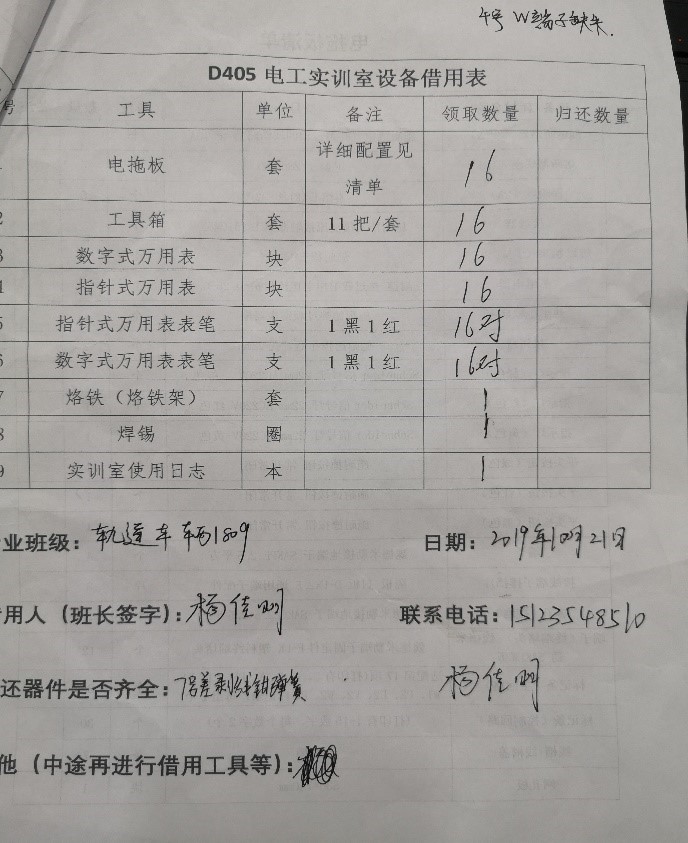 4号 W端子缺失.
D405 电工实训室设备借用表
号 工具 单位 备注 领取数量 归还数量
电拖板 套 详细配置见清单 16
2 工具箱 套 11 把/套 16
3 数字式万用表 块 16
4 指针式万用表 块 16
5 指针式万用表表笔 支 1 黑 1 红 16对
6 数字式万用表表笔 支 1 黑 1 红 16对
7 烙铁（烙铁架） 套 1
8 焊锡 圈 1
9 实训室使用日志 本 1
业班级：轨道车辆1809 日期：2019年10月21日
用人（班长签字）：杨佳明 联系电话：15123548510
还器件是否齐全：7号差剥线钳弹簧 杨佳明
他（中途再进行借用工具等）：